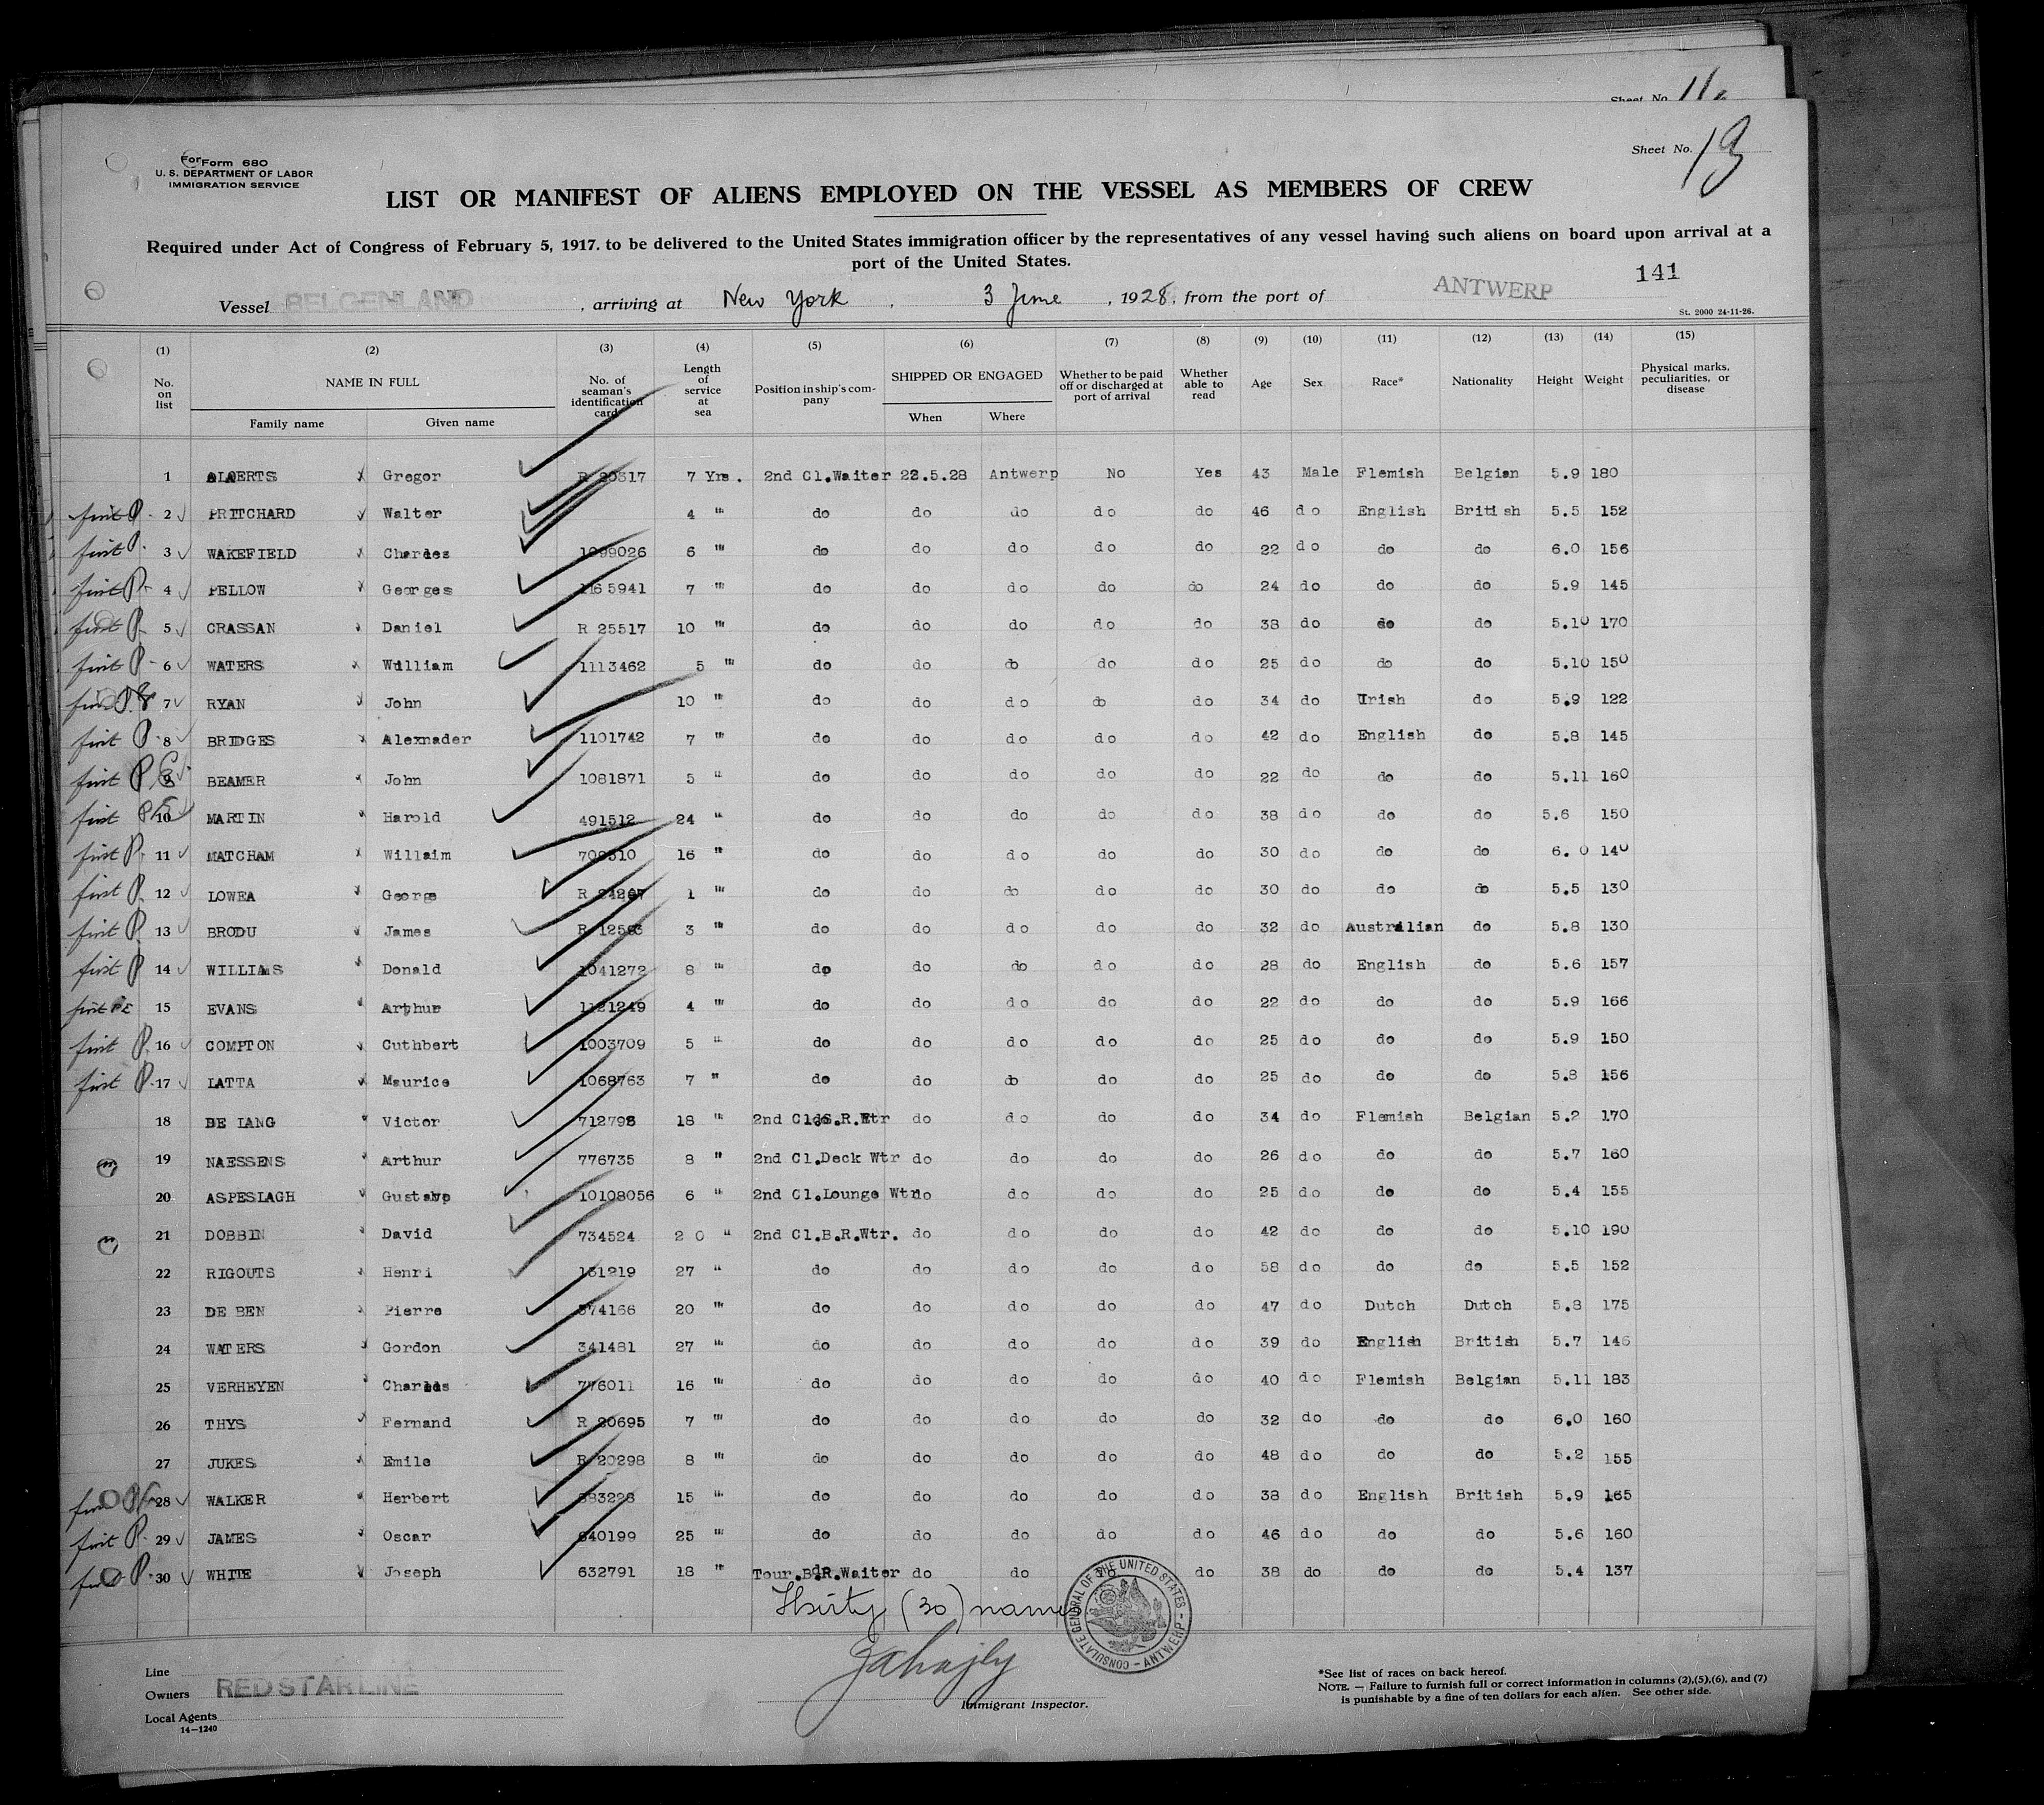 Sheet No. 11
Sheet No. 13
For Form 680
U. S. DEPARTMENT OF LABOR
IMMIGRATION SERVICE
LIST OR MANIFEST OF ALIENS EMPLOYED ON THE VESSEL AS MEMBERS OF CREW
Required under Act of Congress of February 5, 1917. to be delivered to the United States immigration officer by the representatives of any vessel having such aliens on board upon arrival at a
port of the United States.
141
Vessel BELGENLAND , arriving at New York , 3 June , 1928, from the port of ANTWERP
St. 2000 24-11-26.
(1) (2) (3) (4) (5) (6) (7) (8) (9) (10) (11) (12) (13) (14) (15)
No. on list NAME IN FULL Family name Given name No. of seaman's identification card Length of service at sea Position in ship's company SHIPPED OR ENGAGED When Where Whether to be paid off or discharged at port of arrival Whether able to read Age Sex Race* Nationality Height Weight Physical marks, peculiarities, or disease
1 ALAERTS Gregor R 20517 7 Yrs. 2nd Cl.Waiter 22.5.28 Antwerp No Yes 43 Male Flemish Belgian 5.9 180
first P. 2 PRITCHARD Walter 4 " do do do do do 46 do English British 5.5 152
first P. 3 WAKEFIELD Charles 1099026 6 " do do do do do 22 do do do 6.0 156
first P. 4 PELLOW Georges 5941 7 " do do do do do 24 do do do 5.9 145
first P. 5 CRASSAN Daniel R 25517 10 " do do do do do 38 do do do 5.10 170
first P 6 WATERS William 1113462 5 " do do do do do 25 do do do 5.10 150
7 RYAN John 10 " do do do do do 34 do Irish do 5.9 122
first P. 8 BRIDGES Alexnader 1101742 7 " do do do do do 42 do English do 5.8 145
first P 9 BEAMER John 1081871 5 " do do do do do 22 do do do 5.11 160
first P 10 MARTIN Harold 491512 24 " do do do do do 38 do do do 5.6 150
first P. 11 MATCHAM Willaim 709510 16 " do do do do do 30 do do do 6.0 140
first P. 12 LOWEA George R 24267 1 " do do do do do 30 do do do 5.5 130
first P. 13 BRODU James R 12593 3 " do do do do do 32 do Australian do 5.8 130
first P 14 WILLIAMS Donald 1041272 8 " do do do do do 28 do English do 5.6 157
first PE 15 EVANS Arthur 1121249 4 " do do do do do 22 do do do 5.9 166
first P. 16 COMPTON Cuthbert 1003709 5 " do do do do do 25 do do do 5.9 150
first P. 17 LATTA Maurice 1068763 7 " do do do do do 25 do do do 5.8 156
18 DE LANG Victor 712798 18 " 2nd Cl.S.R.Wtr do do do do 34 do Flemish Belgian 5.2 170
19 NAESSENS Arthur 776735 8 " 2nd Cl.Deck Wtr do do do do 26 do do do 5.7 160
20 ASPESLAGH Gustave 10108056 6 " 2nd Cl.Lounge Wtr do do do do 25 do do do 5.4 155
21 DOBBIN David 734524 20 " 2nd Cl.B.R.Wtr. do do do do 42 do do do 5.10 190
22 RIGOUTS Henri 131219 27 " do do do do do 58 do do do 5.5 152
23 DE BEN Pierre 574166 20 " do do do do do 47 do Dutch Dutch 5.8 175
24 WATERS Gordon 341481 27 " do do do do do 39 do English British 5.7 146
25 VERHEYEN Charles 776011 16 " do do do do do 40 do Flemish Belgian 5.11 183
26 THYS Fernand R 20695 7 " do do do do do 32 do do do 6.0 160
27 JUKES Emile R 20298 8 " do do do do do 48 do do do 5.2 155
28 WALKER Herbert 383228 15 " do do do do do 38 do English British 5.9 165
first P. 29 JAMES Oscar 640199 25 " do do do do do 46 do do do 5.6 160
30 WHITE Joseph 632791 18 " Tour.B.R.Waiter do do do do 38 do do do 5.4 137
Thirty (30) names
CONSULATE GENERAL OF THE UNITED STATES - ANTWERP -
Line
Owners RED STAR LINE
Local Agents
14—1240
Immigrant Inspector.
*See list of races on back hereof.
NOTE. — Failure to furnish full or correct information in columns (2),(5),(6), and (7)
is punishable by a fine of ten dollars for each alien. See other side.